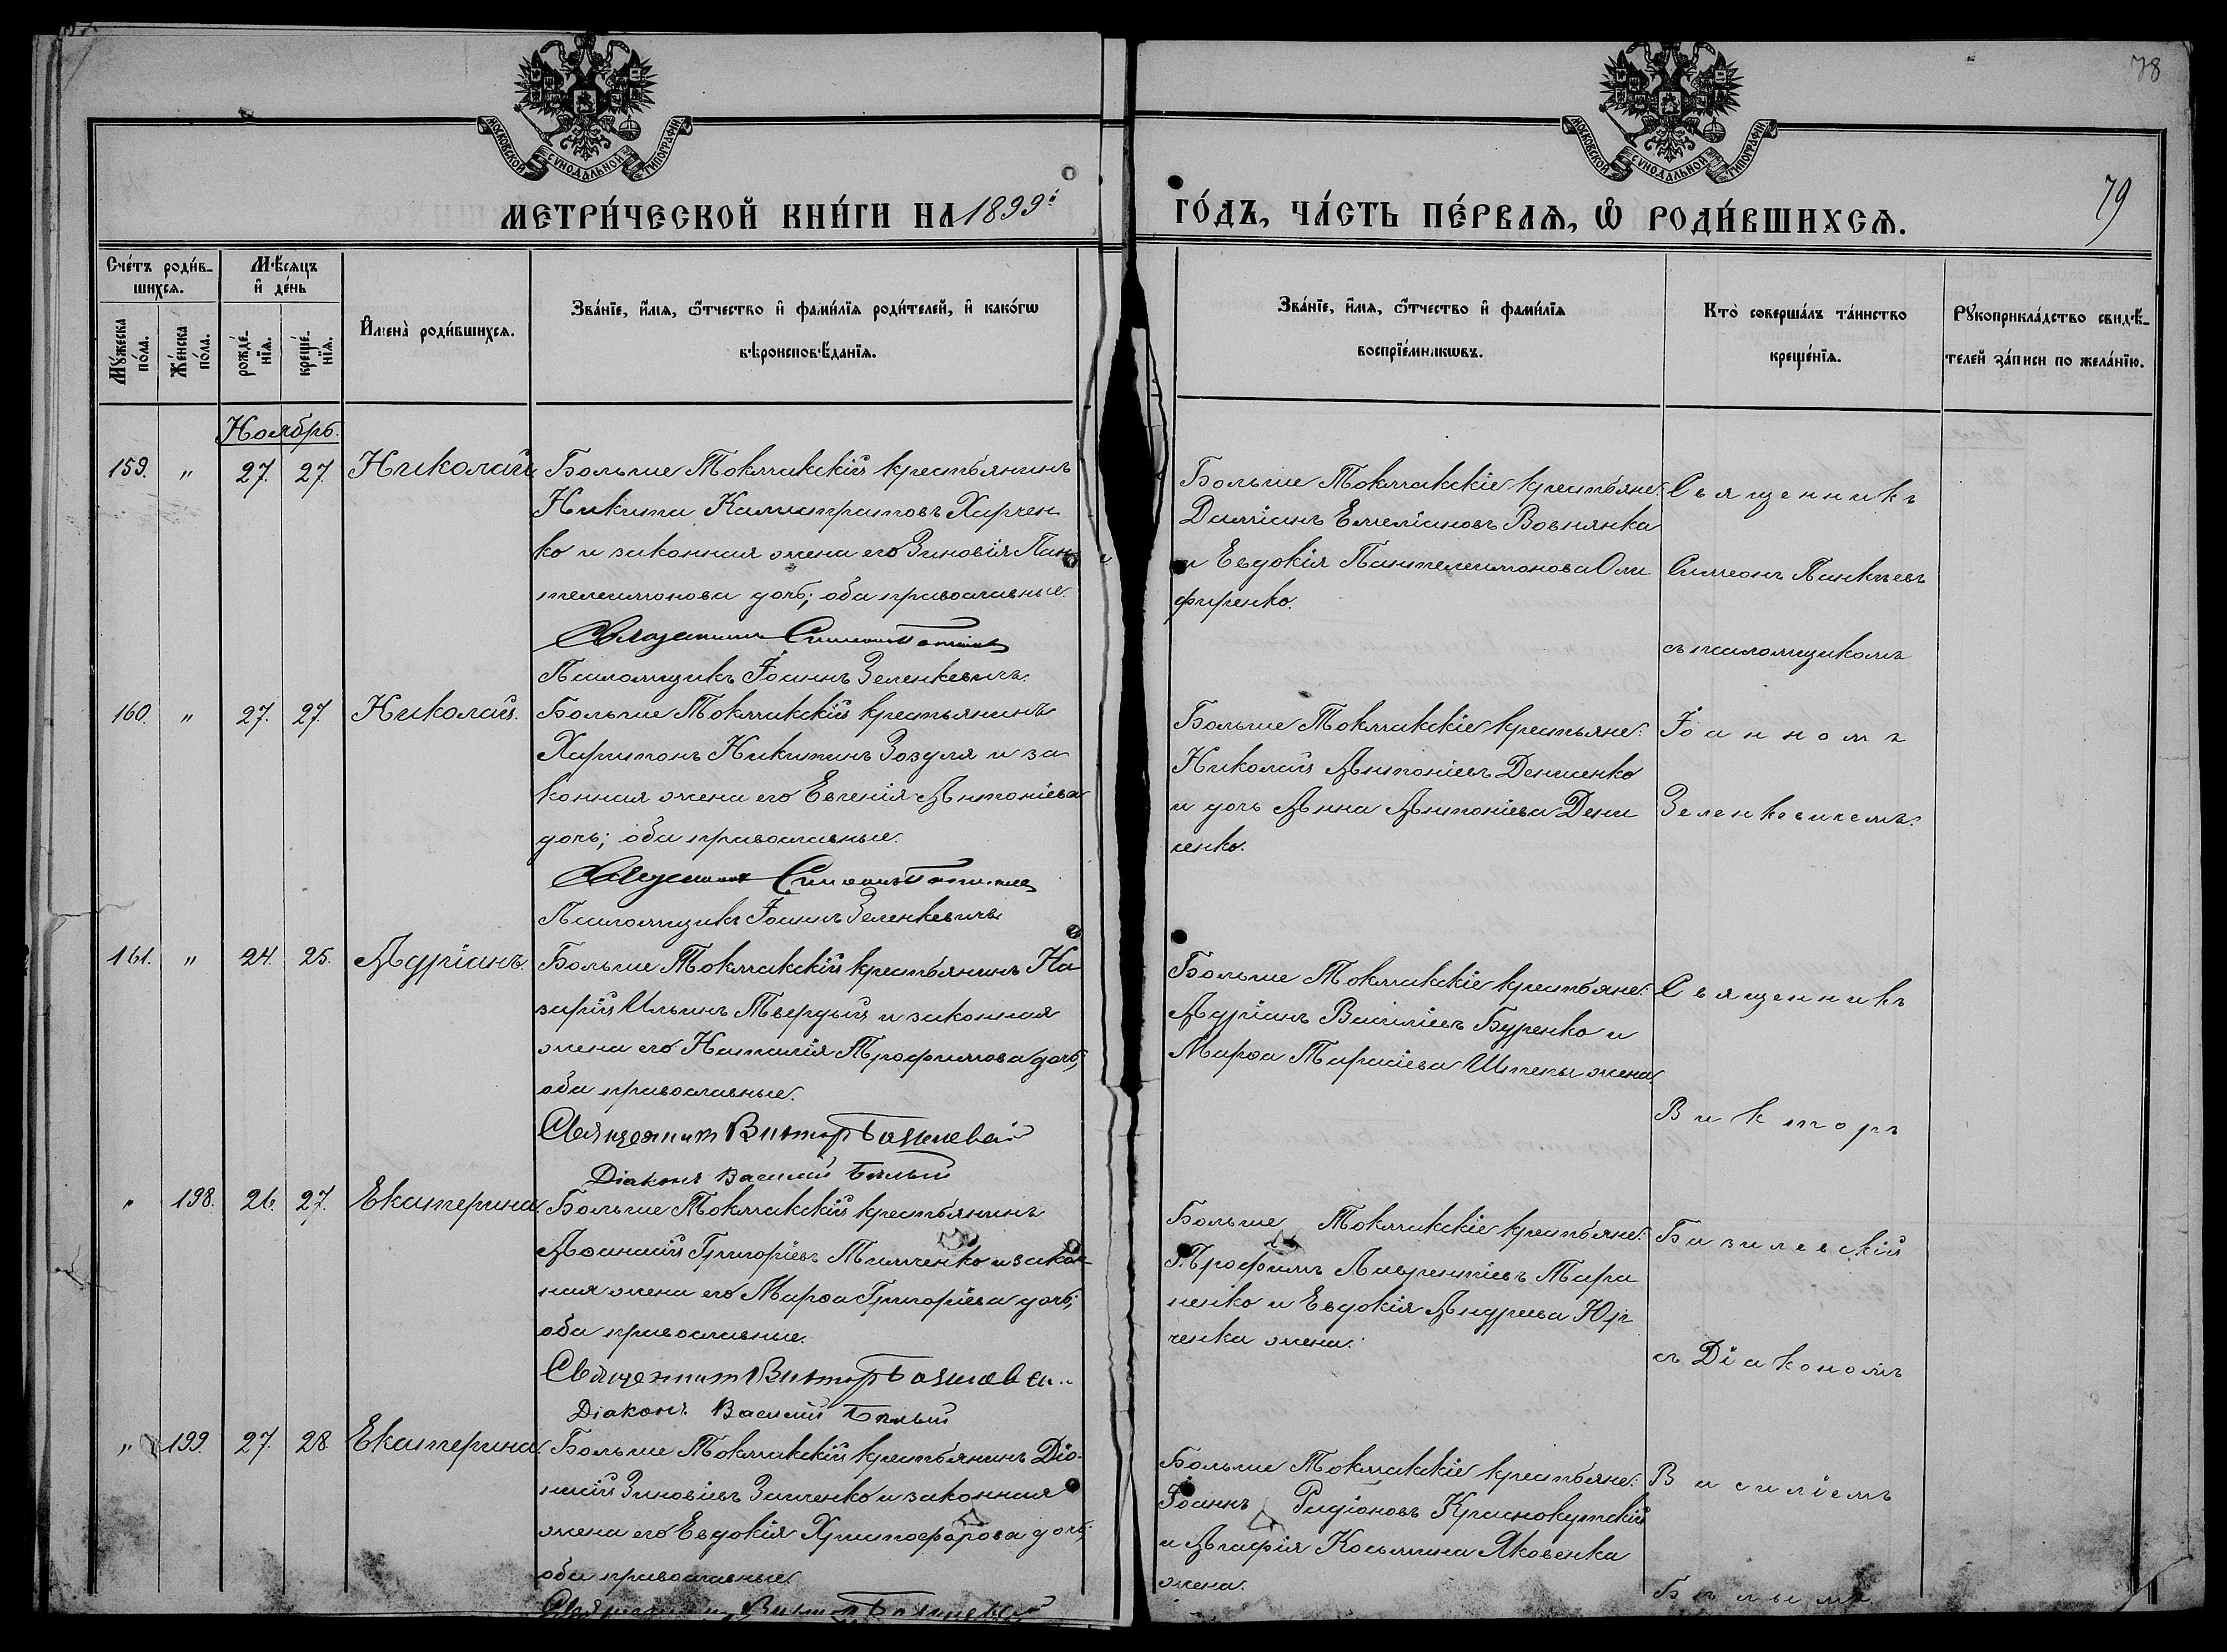 78
МОСКОВСКОЙ СѴНОДАЛЬНОЙ ТИПОГРАФИИ.
МОСКОВСКОЙ СѴНОДАЛЬНОЙ ТИПОГРАФИИ.
79
МЕТРИ́ЧЕСКОЙ КНИ́ГИ НА 1899й
ГО́ДЪ, ЧА́СТЬ ПЕ́РВАѦ, Ѡ РОДИ́ВШИХСѦ.
Сче́тъ роди́в-
шихсѧ.
Мѣ́сѧцъ
и де́нь
Мꙋ́жеска по́ла.
Же́нска по́ла.
рожде́-нїѧ.
креще́-нїѧ.
Имена̀ роди́вшихсѧ.
Зва́нїе, и́мѧ, ѻ́тчество и фами́лїѧ роди́телей, и како́гѡ
вѣроисповѣ́данїѧ.
Зва́нїе, и́мѧ, ѻ́тчество и фами́лїѧ
воспрїе́мникѡвъ.
Кто̀ соверша́лъ та́инство
креще́нїѧ.
Рꙋкоприкла́дство свидѣ́-
телей за́писи по жела́нїю.
Ноябрь.
159. " 27. 27. Николай
Больше Токмакскій крестьянинъ
Никита Калистратовъ Харчен
ко и законная жена его Зиновія Пан
телеимонова дочь; оба православные.
Священникъ Симеонъ
Псаломщикъ Іоаннъ Зеленкевичъ.
Больше Токмакскіе крестьяне:
Даміанъ Емеліановъ Вовнянка
и Евдокія Пантелеимонова Оли
фиренко.
Священникъ
Симеонъ
съ псаломщикомъ
160. " 27. 27. Николай.
Больше Токмакскій крестьянинъ
Харитонъ Никитинъ Зозуля и за
конная жена его Евгенія Антоніева
дочь; оба православные.
Священникъ Симеонъ
Псаломщикъ Іоаннъ Зеленкевичъ
Больше Токмакскіе крестьяне:
Николай Антоніевъ Денисенко
и дочь Анна Антоніева Дени
сенко.
Іоанномъ
Зеленкевичемъ.
161. " 24. 25. Адріанъ.
Больше Токмакскій крестьянинъ На
зарій Ильинъ Твердый и законная
жена его Наталія Трофимова дочь,
оба православные.
Священникъ Викторъ Базилевскій
Діаконъ Василій Бѣлый
Больше Токмакскіе крестьяне:
Адріанъ Василіевъ Буренко и
Марѳа Тарасіева жена
Священникъ
Викторъ
" 198. 26. 27. Екатерина
Больше Токмакскій крестьянинъ
Аѳанасій Григоріевъ Тимченко и закон
ная жена его Марѳа Григоріева дочь;
оба православные.
Священникъ Викторъ Базилевскій
Діаконъ Василій Бѣлый
Больше Токмакскіе крестьяне:
Трофимъ Лаврентіевъ Тара
ненко и Евдокія Андреева Юр
ченка жена.
Базилевскій
съ Діакономъ
" 199. 27. 28. Екатерина.
Больше Токмакскій крестьянинъ Діо
нисій Зиновіевъ и законная
жена его Евдокія Христофорова дочь;
оба православные.
Священникъ Викторъ Базилевскій
Больше Токмакскіе крестьяне:
Іоаннъ Радіоновъ Краснокутскій
и Агафія Косьмина Яковенка
жена.
Василіемъ
Бѣлымъ